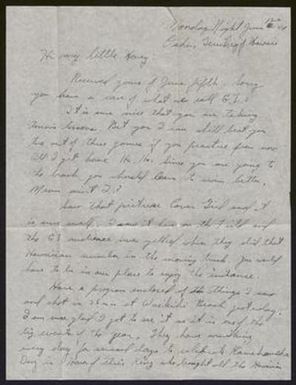 Monday Night June
Oahu, Territory of Hawaii
Hi my little Honey
Received yours of June fifth. Sorry
you have a case of what we call G.I.
It is sure nice that you are taking
Tennis lessons. But you I can still beat you
two out of three games if you practice from now
till I get home. Ha. Ha. Since you are going to
the beach you should learn to swim better.
Mean ain't I?
Saw that picture Cover Girl and it
is very swell. I saw it here on the
the GI audience sure yelled when they did that
Hawaiian number in the moving picture. You would
have to be in our place to enjoy the
Have a program enclosed of the things I saw
and shot in at Waikiki Beach yesterday.
I am sure glad I got to see it as it is one of the
big events of the year. They have something
every day for several days to celebrate Kamehameha
Day in honor of their King who brought all the Hawaiian